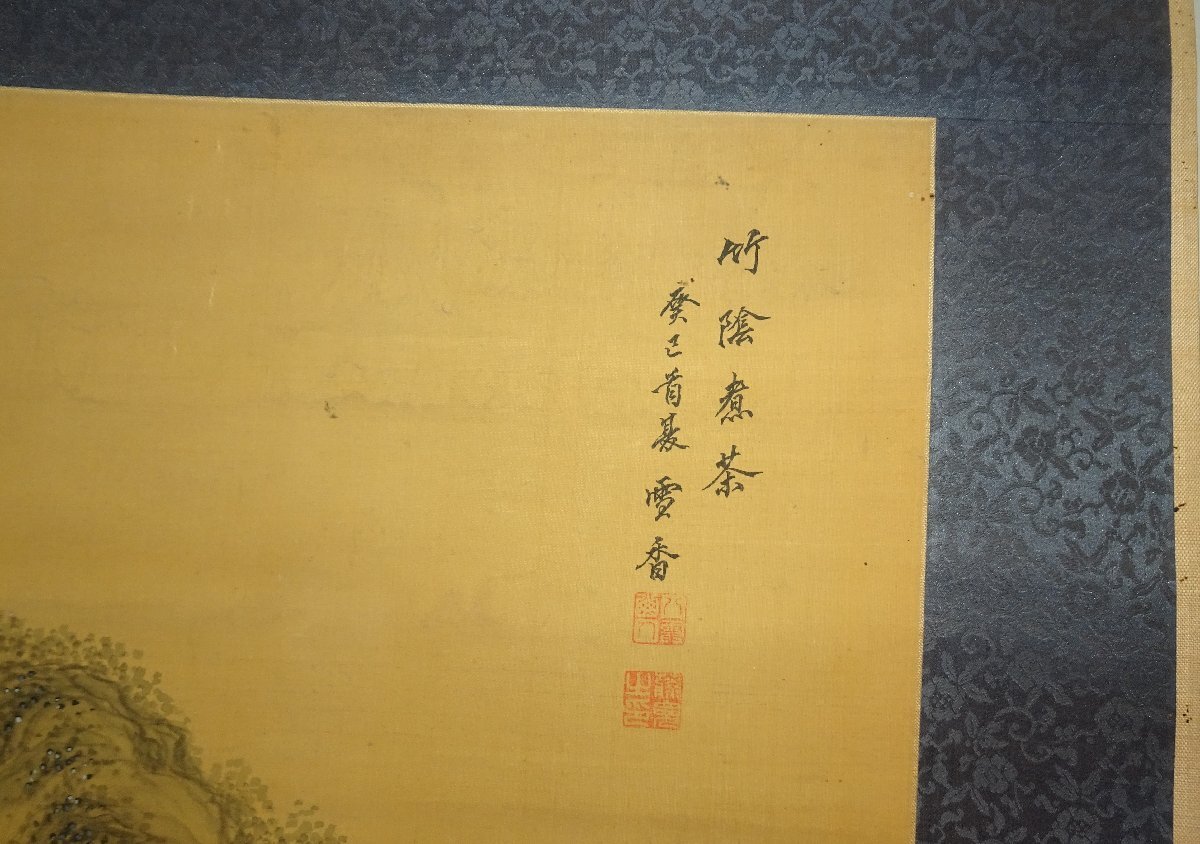 竹陰煮茶
癸巳首夏雪香